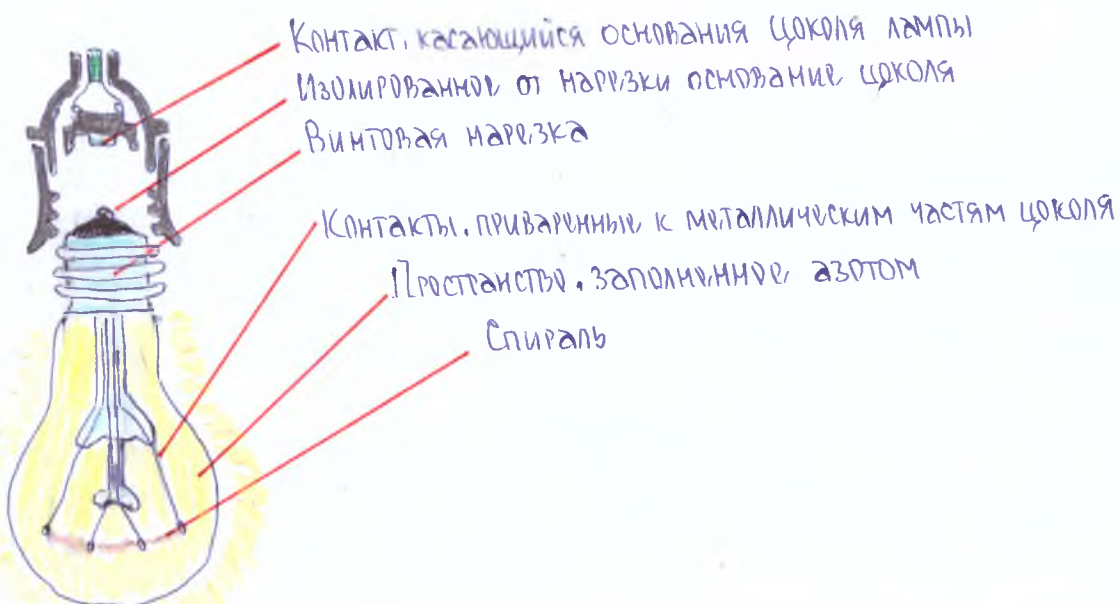 Контакт, касающийся основания цоколя лампы
Изолированное от нарезки основание цоколя
Винтовая нарезка
Контакты, приваренные к металлическим частям цоколя
Пространство, заполненное азотом
Спираль